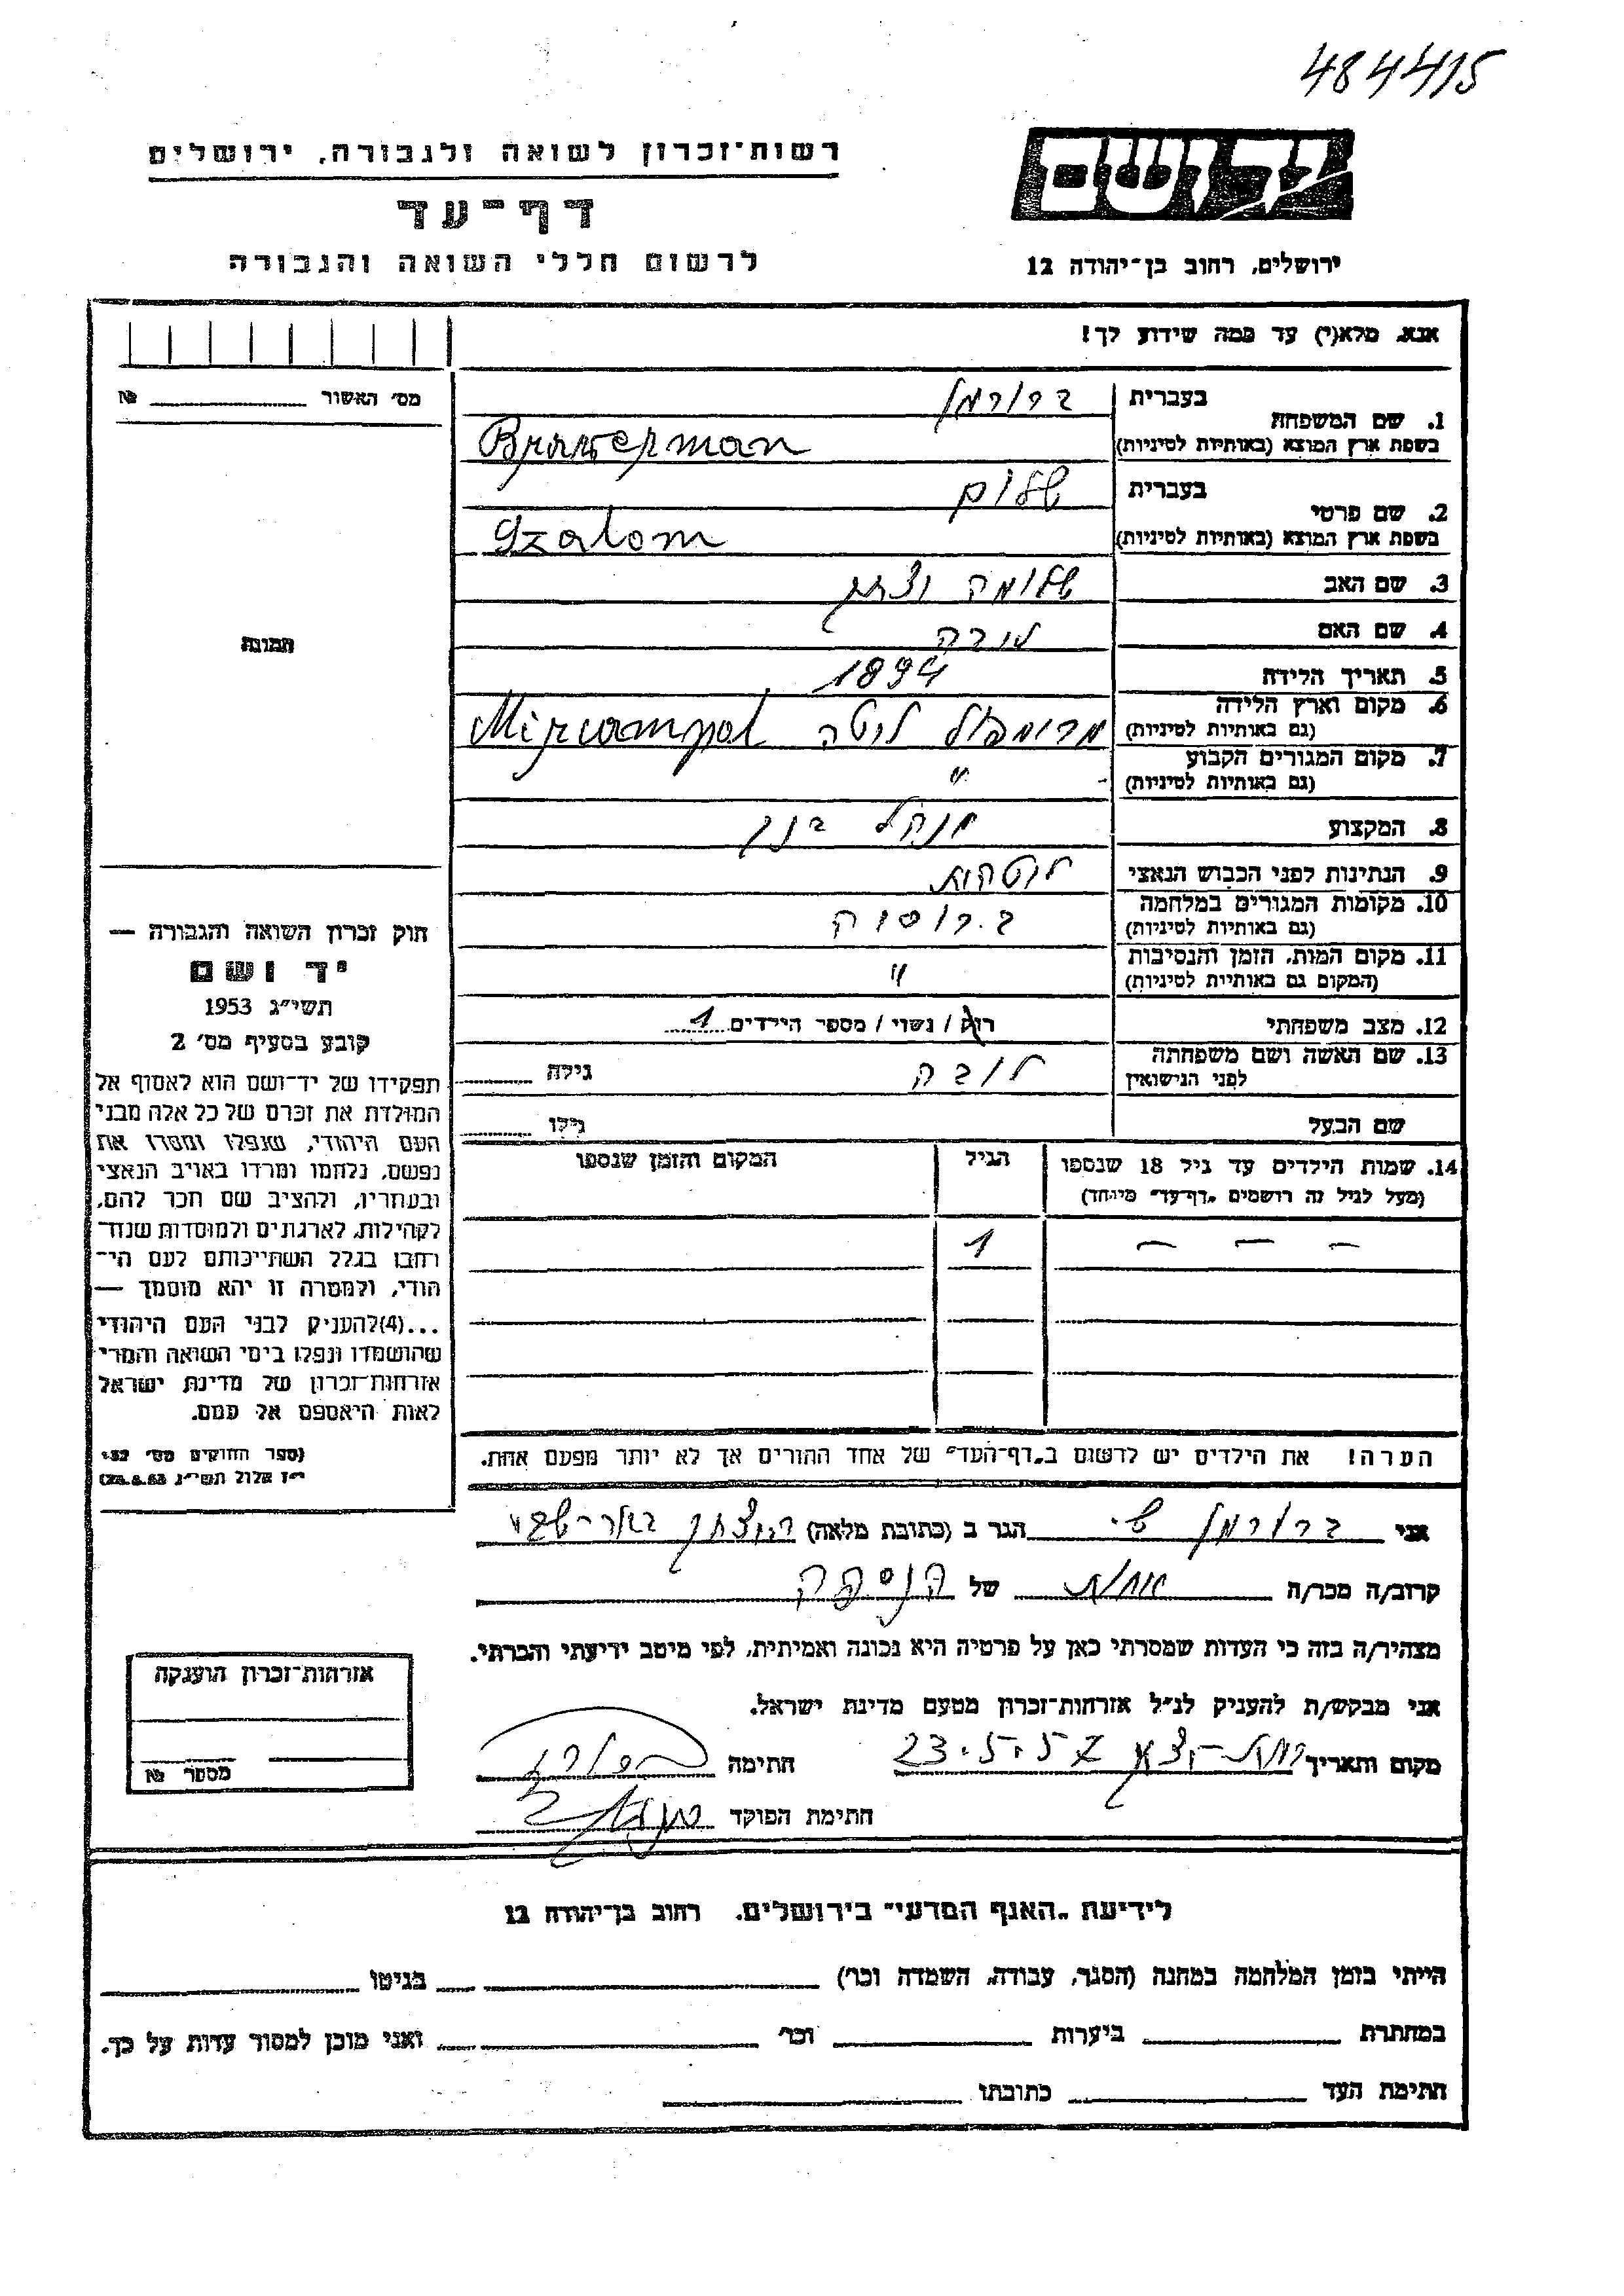 484415
רשות־זכרון לשואה ולגבורה, ירושלים
דף־עד
לרשום חללי השואה והגבורה
יד ושם
ירושלים, רחוב בן־יהודה 12
אנא, מלא(י) עד כמה שידוע לך!
מס׳ האשור № 
1. שם המשפחה
בעברית ברורמן
בשפת ארץ המוצא (באותיות לטיניות) Brawerman
2. שם פרטי
בעברית שלום
בשפת ארץ המוצא (באותיות לטיניות) Szalom
3. שם האב שלומה
4. שם האם
5. תאריך הלידה 1894
6. מקום וארץ הלידה
(גם באותיות לטיניות) מרומפול ליטה
7. מקום המגורים הקבוע
(גם באותיות לטיניות) "
8. המקצוע מנהל בנק
9. הנתינות לפני הכבוש הנאצי
10. מקומות המגורים במלחמה
(גם באותיות לטיניות) ב.רוסיה
11. מקום המות, הזמן והנסיבות
(המקום גם באותיות לטיניות) "
12. מצב משפחתי רוק / נשוי / מספר הילדים 1
13. שם האשה ושם משפחתה
לפני הנישואין לובה גילה
שם הבעל גילו
14. שמות הילדים עד גיל 18 שנספו
(מעל לגיל זה רושמים „דף־עד״ מיוחד)
הגיל
המקום והזמן שנספו
— — — 1
הערה! את הילדים יש לרשום ב„דף־העד״ של אחד ההורים אך לא יותר מפעם אחת.
תמונה
חוק זכרון השואה והגבורה —
יד ושם
תשי״ג 1953
קובע בסעיף מס׳ 2
תפקידו של יד־ושם הוא לאסוף אל
המולדת את זכרם של כל אלה מבני
העם היהודי, שנפלו ומסרו את
נפשם, נלחמו ומרדו באויב הנאצי
ובעוזריו, ולהציב שם וזכר להם,
לקהילות, לארגונים ולמוסדות שנח־
רבו בגלל השתייכותם לעם הי־
הודי, ולמטרה זו יהא מוסמך —
...(4) להעניק לבני העם היהודי
שהושמדו ונפלו בימי השואה והמרי
אזרחות־זכרון של מדינת ישראל
לאות היאספם אל עמם.
(ספר החוקים מס׳ 132
י״ז אלול תשי״ג 28.8.53)
אני ברורמן ש. הגר ב (כתובת מלאה) באר־שבע
קרוב/ה מכר/ה של הניספה
מצהיר/ה בזה כי העדות שמסרתי כאן על פרטיה היא נכונה ואמיתית, לפי מיטב ידיעתי והכרתי.
אני מבקש/ת להעניק לנ״ל אזרחות־זכרון מטעם מדינת ישראל.
מקום ותאריך 23.5.57 חתימה
חתימת הפוקד
אזרחות־זכרון הוענקה
מספר №
לידיעת „האגף המדעי״ בירושלים, רחוב בן־יהודה 12
הייתי בזמן המלחמה במחנה (הסגר, עבודה, השמדה וכר׳) בגיטו
במחתרת ביערות וכר׳ ואני מוכן למסור עדות על כך.
חתימת העד כתובתו